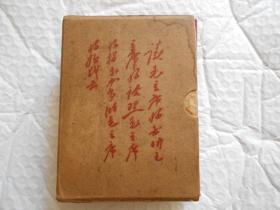 读毛主席的书听毛
主席的话照毛主席
的指示办事做毛主席
的好战士